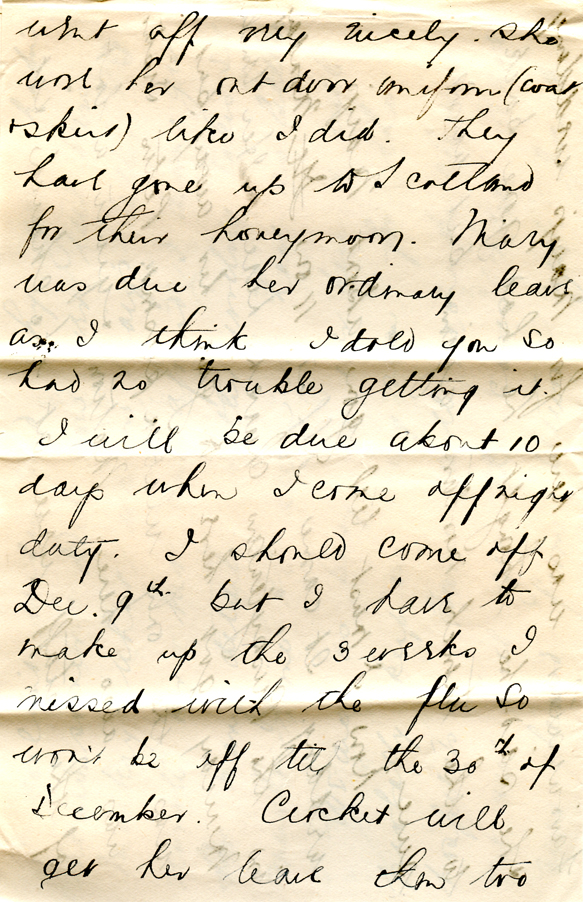 went off very nicely. She
wore her outdoor uniform (coat
+ skirt) like I did. They
have gone up to Scotland
for their honeymoon. Mary
was due her ordinary leave
as I think I told you so
had no trouble getting it.
I will be due about 10
days when I come off night
duty. I should come off
Dec. 9th but I have to
make up the 3 weeks I
missed with the flu so
won't be off till the 30th of
December. Crocket will
get her leave then too